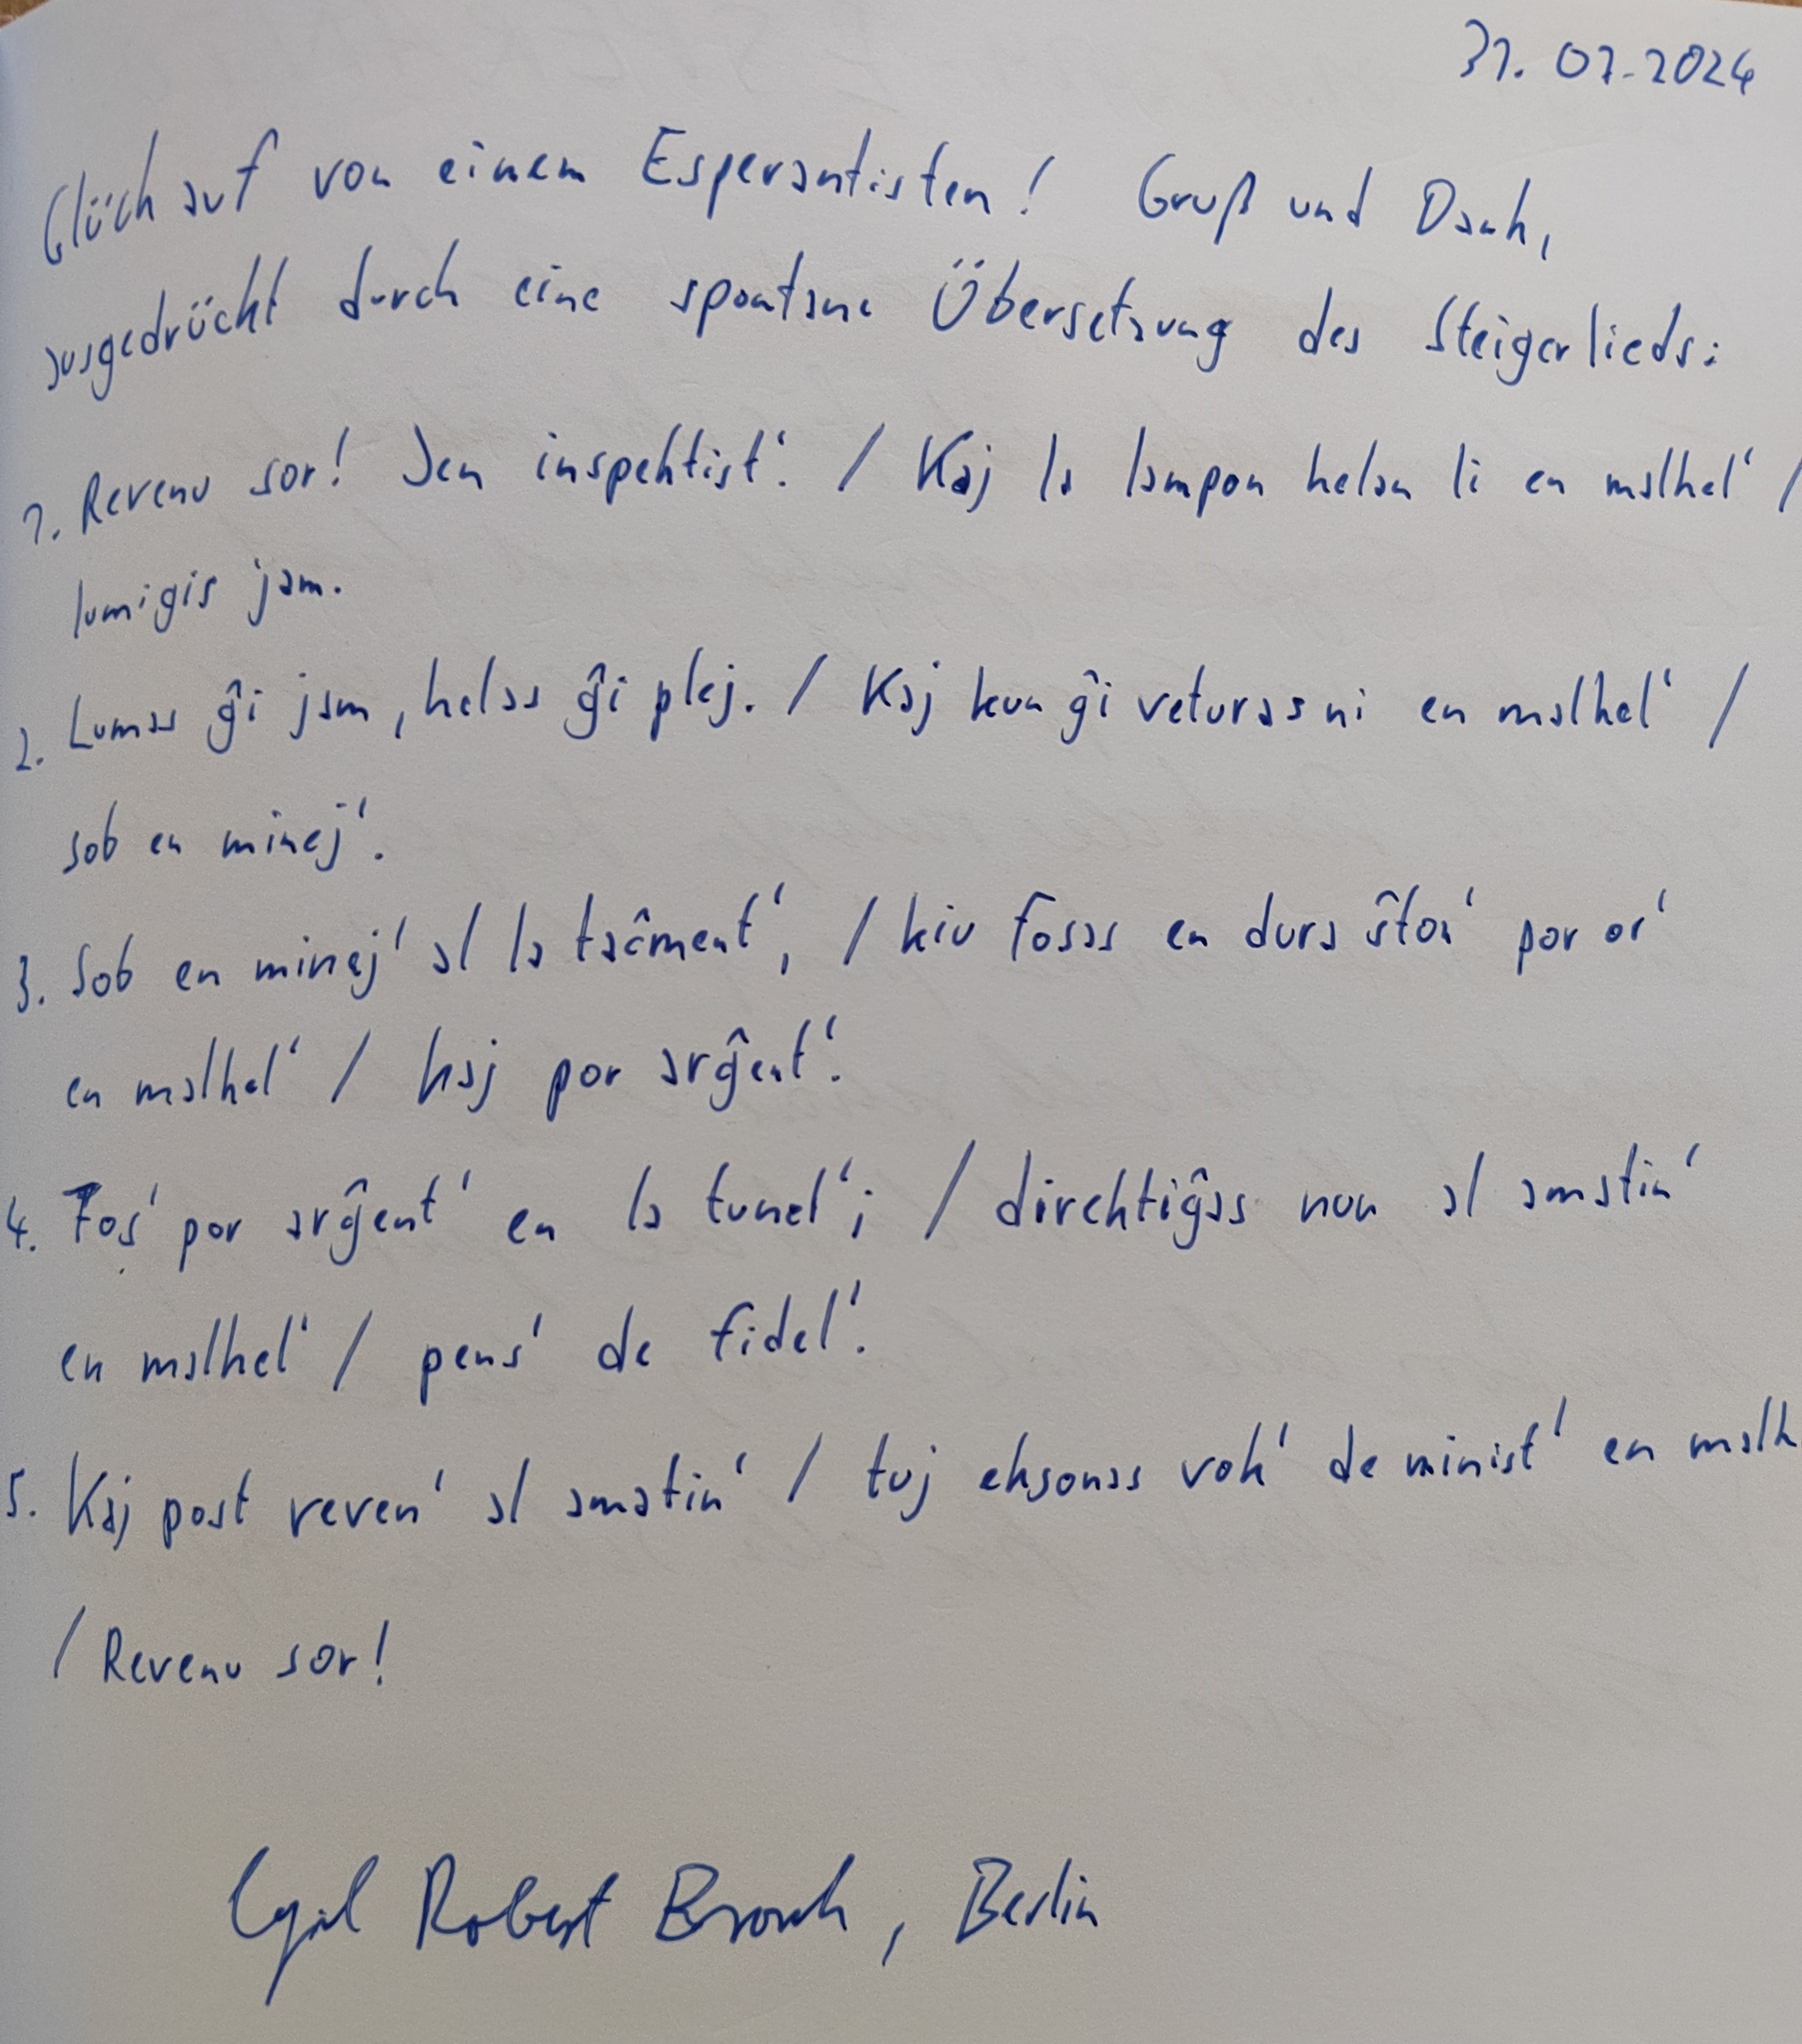 31.07.2024
Glück auf von einem Esperantisten! Gruß und Dank,
ausgedrückt durch eine spontane Übersetzung des Steigerlieds:
1. Revenu sor! Jen inspektist'. / Kaj la lampon helan li en malhel' /
lumigis jam.
2. Lumas ĝi jam, helas ĝi plej. / Kaj kun ĝi veturas ni en malhel' /
sob en minej'.
3. Sob en minej' al la taĉment', / kiu fosas en dura ŝton' por or'
en malhel' / kaj por arĝent'.
4. Fos' por arĝent' en la tunel'; / direktiĝas nun al amatin'
en malhel' / pens' de fidel'.
5. Kaj post reven' al amatin' / tuj eksonas vok' de minist' en malh
/ Revenu sor!
Cyril Robert Brosch, Berlin